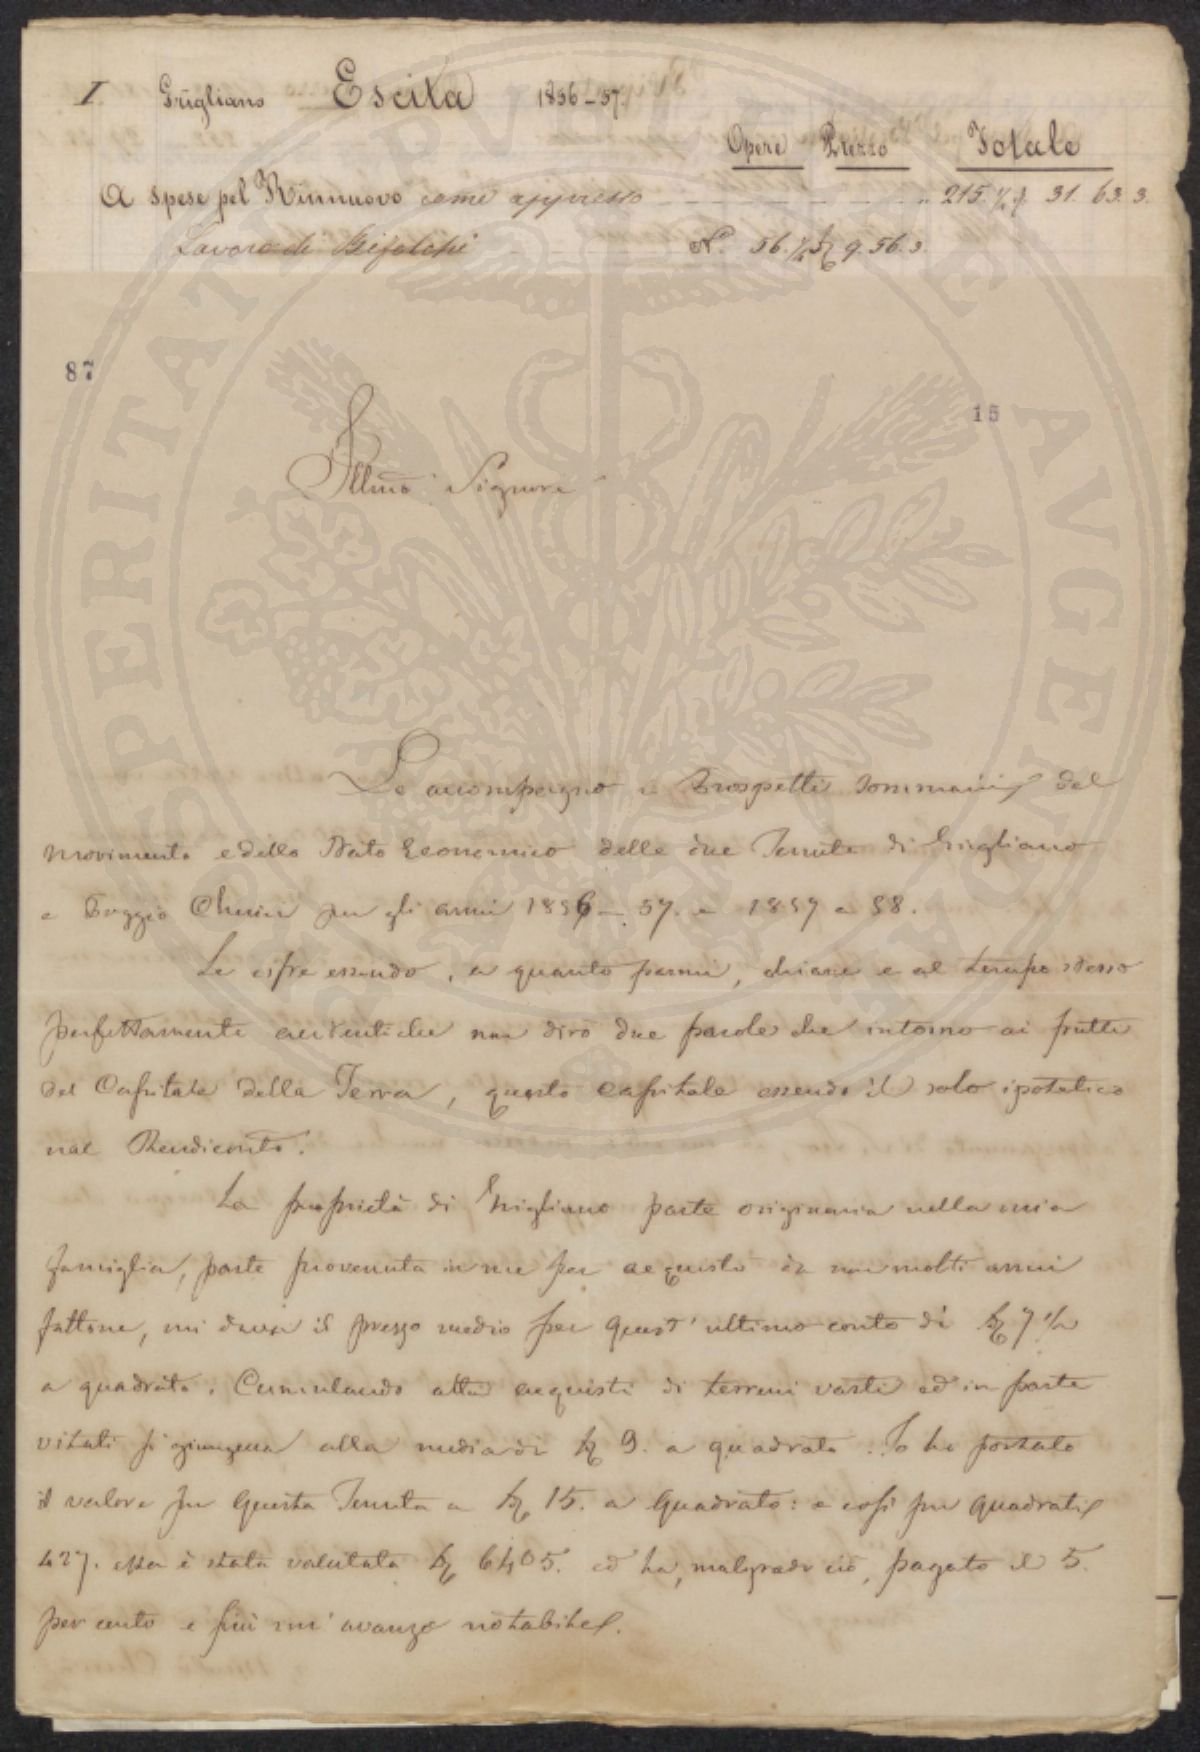 I Grigliano Escita 1856-57.
Opere Prezzo Totale
A spese pel Rinnuovo come appresso 215.½ 31. 63. 3.
Lavoro di Bifolchi N. 56.½ 9. 56. 3.
87
15
Illmo Signore
Le accompagno i Prospetti sommarii del
movimento e dello Stato Economico delle due Tenute di Grigliano
e Poggio per gli anni 1856-57. e 1857 e 58.
Le cifre essendo, a quanto parmi, chiare e al tempo stesso
perfettamente autentiche non dirò due parole che intorno ai frutti
del Capitale della Terra, questo capitale essendo il solo ipotetico
nel Rendiconto.
La proprietà di Grigliano parte originaria nella mia
famiglia, parte provenuta in me per acquisto da non molti anni
fattone, mi dava il prezzo medio per quest'ultimo conto di 7 ½
a quadrato. Cumulando altri acquisti di terreni vasti ed in parte
vitati si giungeva alla media di 9. a quadrato. Io ho portato
il valore per questa Tenuta a 15. a Quadrato: e così per quadrati
427. essa è stata valutata 6405. ed ha, malgrado ciò, pagato il 5.
per cento e più un' avanzo notabile.
SPERITAT PVBLICAE AVGENDAE